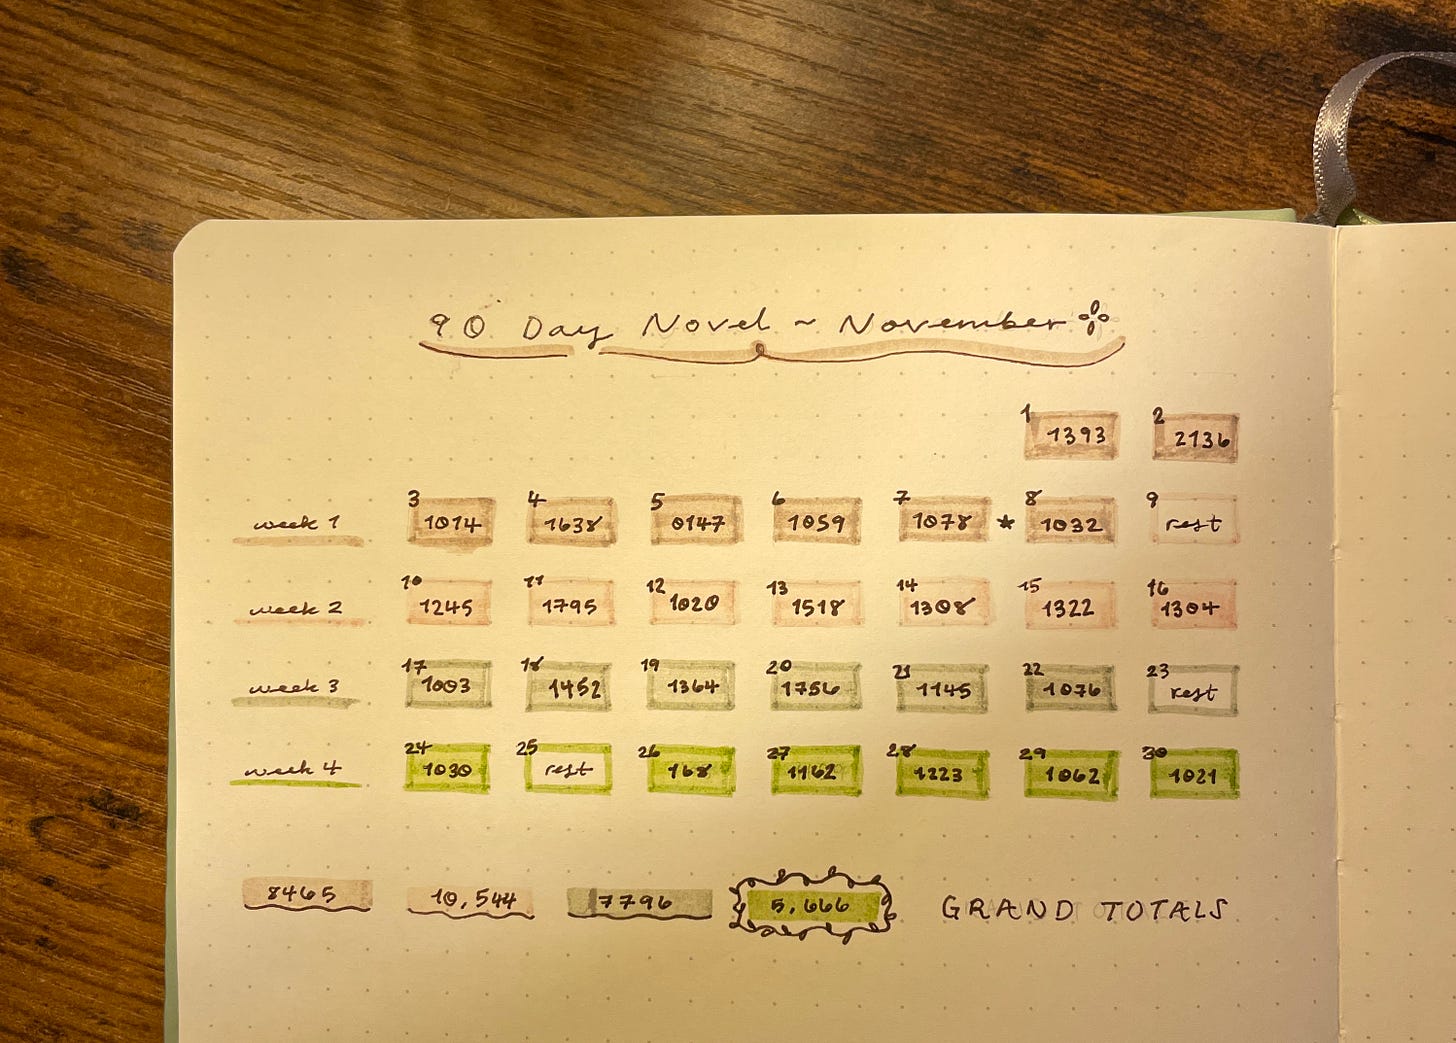 90 Day Novel ~ November
1 2
1393 2136
3 4 5 6 7 8 9
week 1 1014 1638 0147 1059 1078 * 1032 rest
10 11 12 13 14 15 16
week 2 1245 1795 1020 1518 1308 1322 1304
17 18 19 20 21 22 23
week 3 1003 1452 1364 1756 1145 1076 rest
24 25 26 27 28 29 30
week 4 1030 rest 168 1162 1223 1062 1021
8465 10,544 7796 5,666 GRAND TOTALS